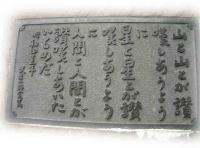 山と山とが讃
嘆しあうよう
に
星と星とが讃
嘆しあうよう
に
人間と人間とが
讃嘆しあいた
いものだ